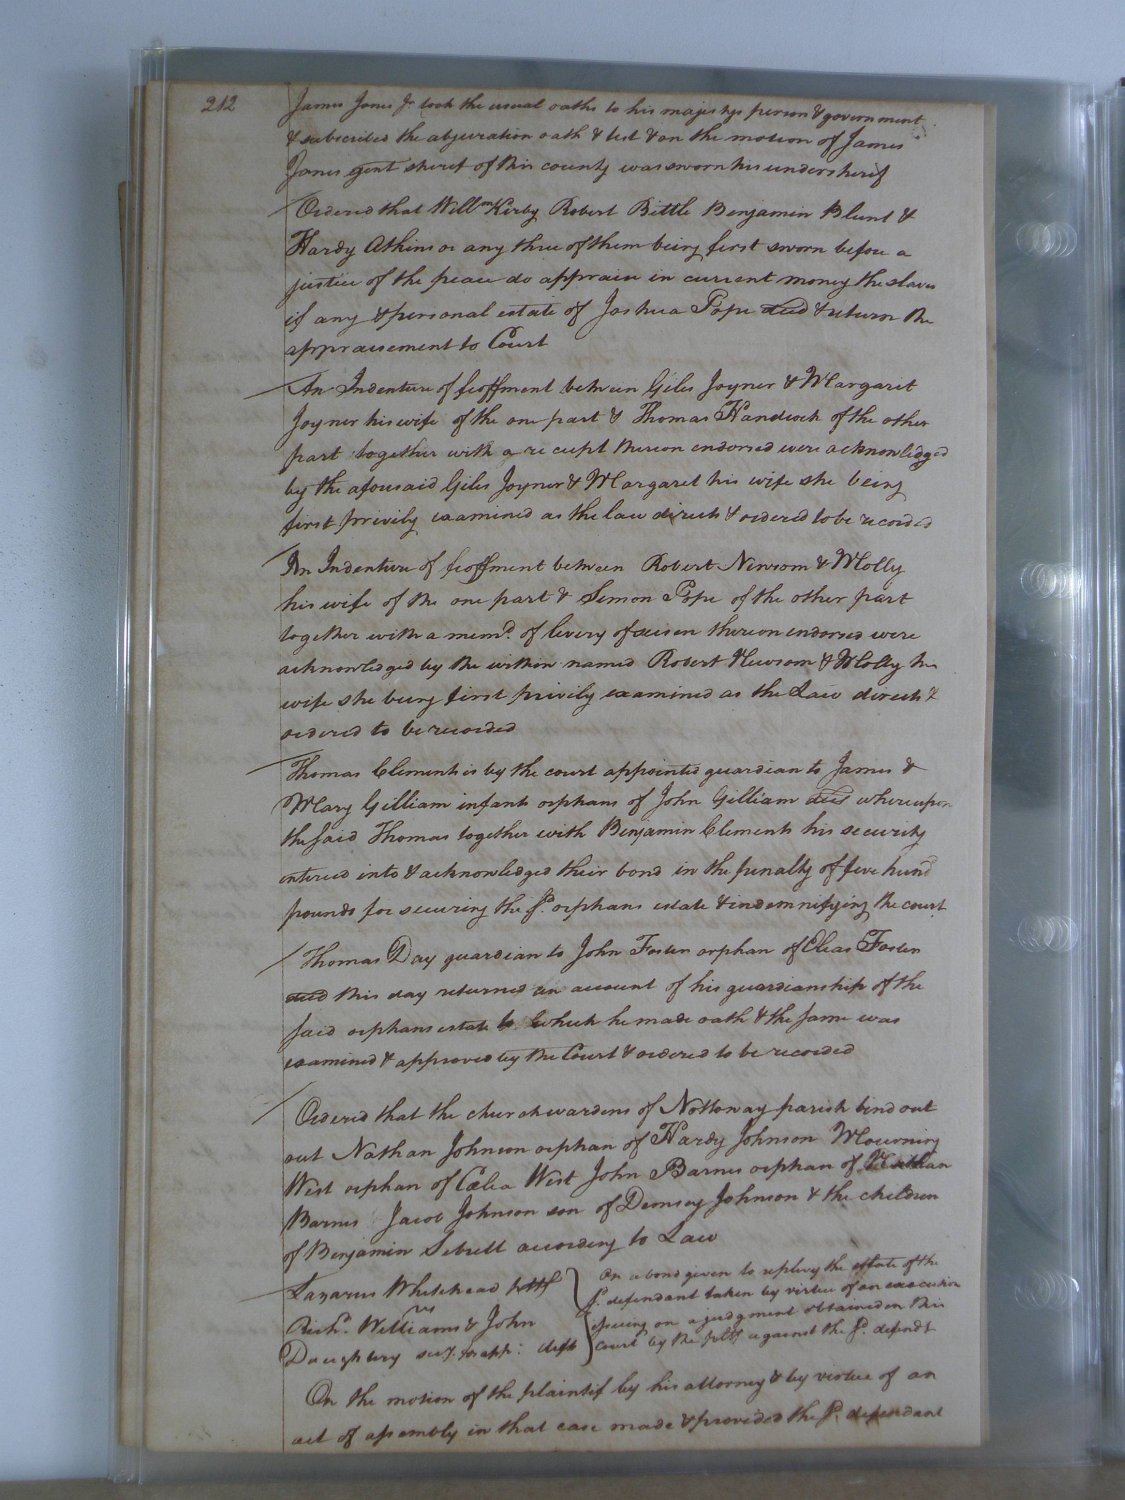 212
James Jones Jr. took the usual oaths to his majestys person & government
& subscribed the abjuration oath & test & on the motion of James
Jones gent sherif of this county was sworn his undersherif
Ordered that Willm Kirby Robert Bittle Benjamin Blunt &
Hardy Atkins or any three of them being first sworn before a
justice of the peace do appraise in current money the slaves
if any & personal estate of Joshua Pope deced & return the
appraisement to Court
An Indenture of feoffment between Giles Joyner & Margaret
Joyner his wife of the one part & Thomas Handcock of the other
part together with a receipt thereon endorsed were acknowledged
by the aforesaid Giles Joyner & Margaret his wife she being
first privily examined as the law directs & ordered to be recorded
An Indenture of feoffment between Robert Newsom & Molly
his wife of the one part & Simon Pope of the other part
together with a memd. of livery of seisen thereon endorsed were
acknowledged by the within named Robert Newsom & Molly his
wife she being first privily examined as the Law directs &
ordered to be recorded
Thomas Clements is by the court appointed guardian to James &
Mary Gilliam infants orphans of John Gilliam deced whereupon
the said Thomas together with Benjamin Clements his security
entered into & acknowledged their bond in the penalty of five hund
pounds for securing the sd. orphans estate & indemnifying the court
Thomas Day guardian to John Fosten orphan of Elias Fosten
deced this day returned an account of his guardianship of the
said orphans estate to which he made oath & the same was
examined & approved by the Court & ordered to be recorded
Ordered that the churchwardens of Nottoway parish bind out
out Nathan Johnson orphan of Hardy Johnson Mourning
West orphan of Cælia West John Barnes orphan of Nathan
Barnes Jacob Johnson son of Demsey Johnson & the children
of Benjamin Sebrell according to Law
Lazarus Whitehead pltf
vs
Richd. Williams & John
Daughtry defts
On a bond given to replevy the estate of the
sd. defendant taken by virtue of an execution
issuing on a judgment obtained in this
court by the pltf against the sd. defendt
On the motion of the plaintif by his attorney & by virtue of an
act of assembly in that case made & provided the sd. defendant